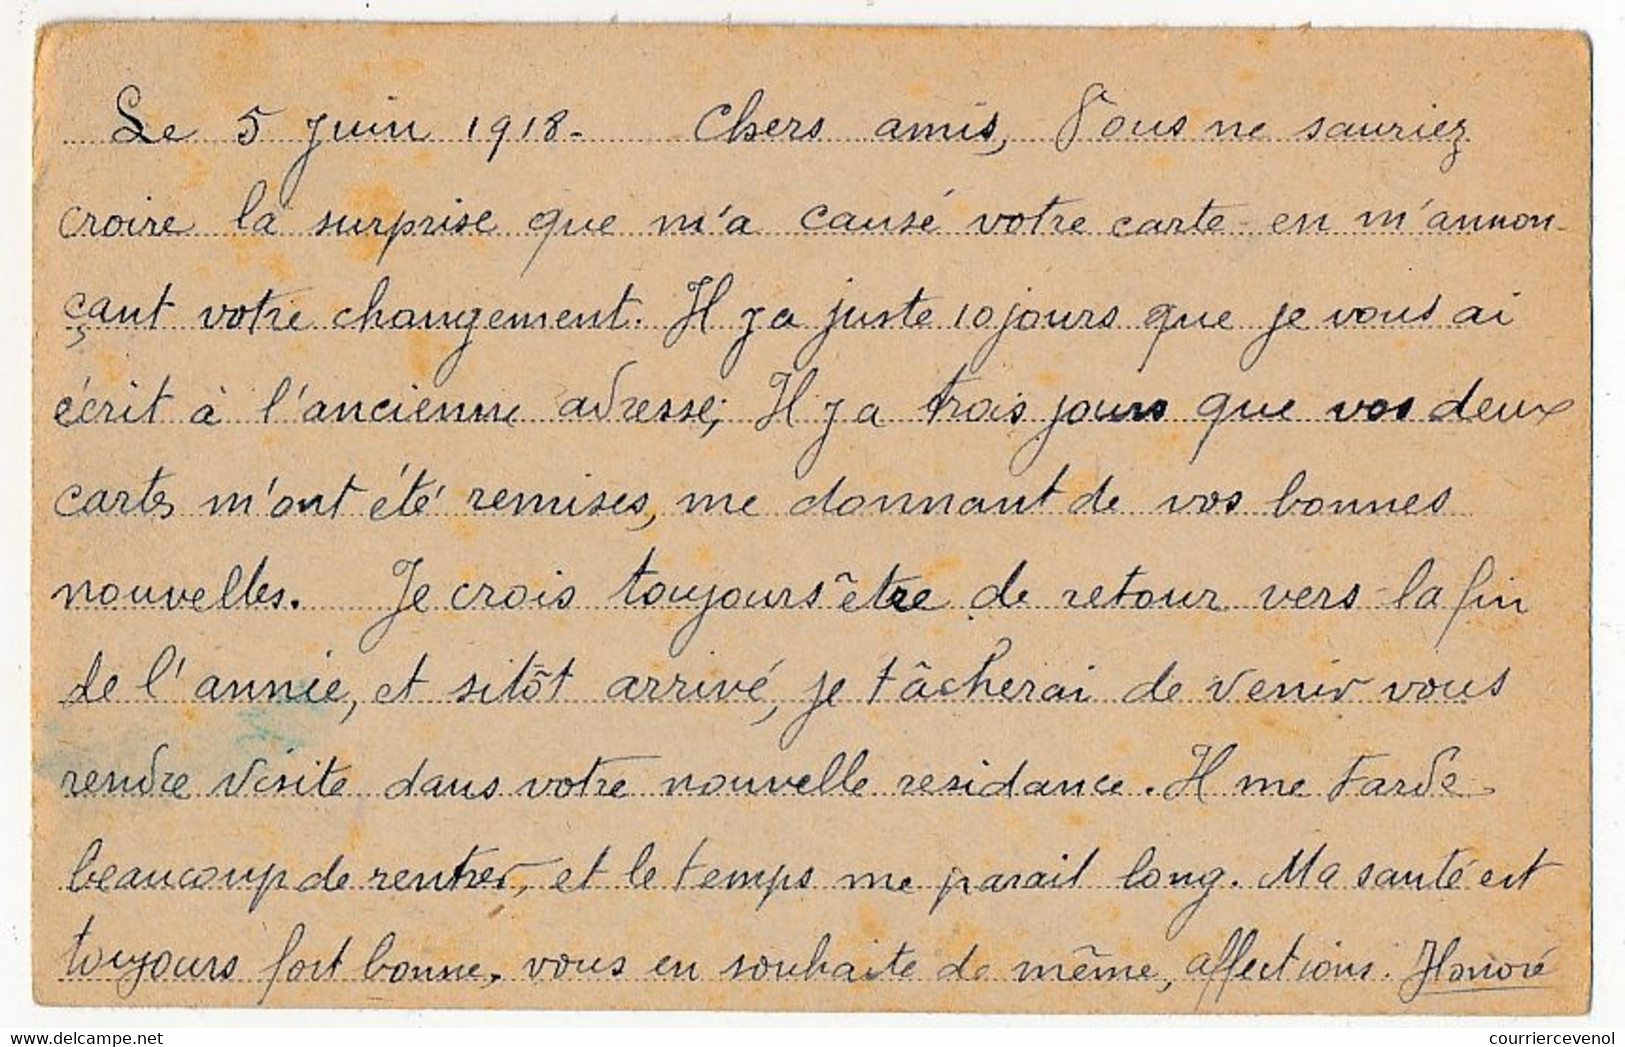 Le 5 Juin 1918. Chers amis, Vous ne sauriez
croire la surprise que m'a causé votre carte en m'annon-
çant votre changement. Il y a juste 10 jours que je vous ai
écrit à l'ancienne adresse; Il y a trois jours que vos deux
cartes m'ont été remises, me donnant de vos bonnes
nouvelles. Je crois toujours être de retour vers la fin
de l'année, et sitôt arrivé, je tâcherai de venir vous
rendre visite dans votre nouvelle residance. Il me tarde
beaucoup de rentrer, et le temps me parait long. Ma santé est
toujours fort bonne, vous en souhaite de même, affections. Honoré
www.delcampe.net
courriercevenol